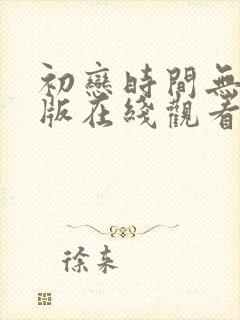 初戀時間無
版在綫觀看
徐來